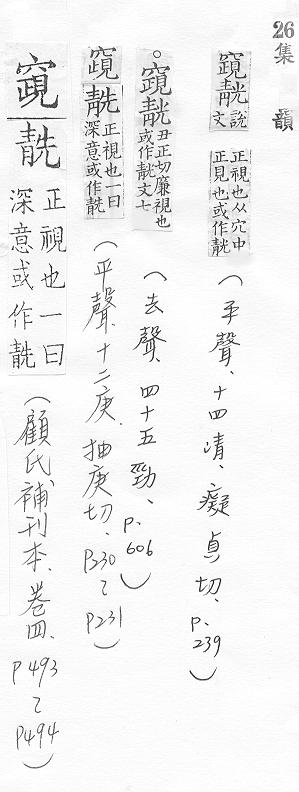 26
集韻
䆸靗說文正視也从穴中正見也或作靗(平聲、十四清、癡貞切、p.239)
。䆸靗丑正切廉視也或作靗文七(去聲、四十五勁、p.606)
䆸靗正視也一曰深意或作靗(平聲、十二庚、抽庚切、P230~P231)
䆸靗正視也一曰深意或作靗(顧氏補刊本、卷四、P493~P494)